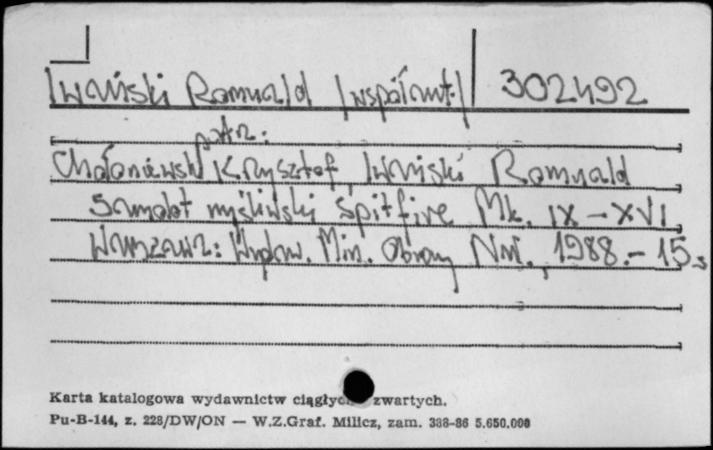 Iwański Romuald /współaut./ 302492
patrz:
Chołoniewski Krzysztof, Iwański Romuald
Samolot myśliwski Spitfire Mk. IX-XVI.
Warszawa: Wydaw. Min. Obrony Nar., 1988.- 15 s
Karta katalogowa wydawnictw ciągłych zwartych.
Pu-B-144, z. 228/DW/ON — W.Z.Graf. Milicz, zam. 388-86 5.650.000